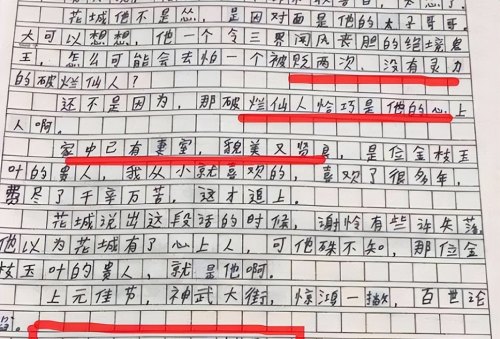 花城他不是怂，是因对面是他的太子哥哥。
大可以想想，他一个令三界闻风丧胆的绝境鬼
王，怎么可能会去怕一个被贬两次，没有灵力
的破烂仙人？
还不是因为，那破烂仙人恰巧是他的心上
人啊。
家中已有妻室，貌美又贤惠，是位金枝玉
叶的贵人，我从小就喜欢的，喜欢了很多年，
费尽了千辛万苦，这才追上。
花城说出这段话的时候，谢怜有些许失落，
他以为花城有了心上人，可他殊不知，那位金
枝玉叶的贵人，就是他啊。
上元佳节，神武大街，惊鸿一撇，百世沦